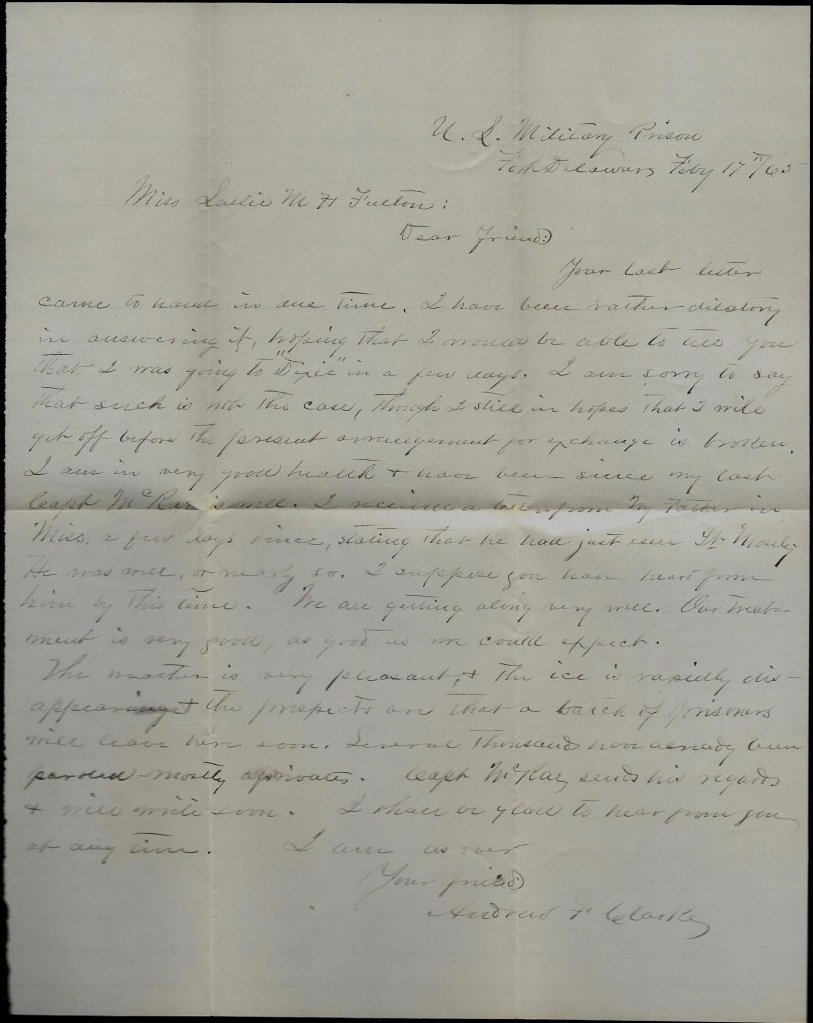 U. S. Military Prison
Fort Delaware Feby 17th/65
Miss Sallie M H Fulton:
Dear friend:
Your last letter
came to hand in due time. I have been rather dilatory
in answering it, hoping that I would be able to tell you
that I was going to "Dixie" in a few days. I am sorry to say
that such is not the case, though I still in hopes that I will
get off before the present arrangement for exchange is broken.
I am in very good health & have been since my last
Capt McRae is well. I received a letter from my Father in
Miss. a few days since, stating that he had just seen Lt Mosely
He was well, or nearly so. I suppose you have heard from
him by this time. We are getting along very well. Our treat-
ment is very good, as good as we could expect.
The weather is very pleasant, & the ice is rapidly dis-
appearing & the prospects are that a batch of prisoners
will leave here soon. Several thousand have already been
paroled - mostly privates. Capt McRae sends his regards
& will write soon. I shall be glad to hear from you
at any time. I am as ever
Your friend
Andrew F